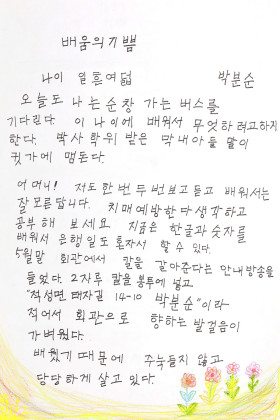 배움의 기쁨
나이 일흔여덟 박분순
오늘도 나는 순창 가는 버스를
기다린다. 이 나이에 배워서 무엇하려고하지
한다. 박사 학위 받은 막내아들 말이
귓가에 맴돈다.
어머니! 저도 한 번 두 번 보고 듣고 배워서는
잘 모른답니다. 치매예방한다 생각하고
공부해 보세요 지금은 한글과 숫자를
배워서 은행일도 혼자서 할 수 있다.
5월말 회관에서 칼을 갈아준다는 안내방송을
들었다. 2자루 칼을 봉투에 넣고
"적성면 태자길 14-10 박분순"이라
적어서 회관으로 향하는 발걸음이
가벼웠다.
배웠기 때문에 주눅들지 않고
당당하게 살고 있다.